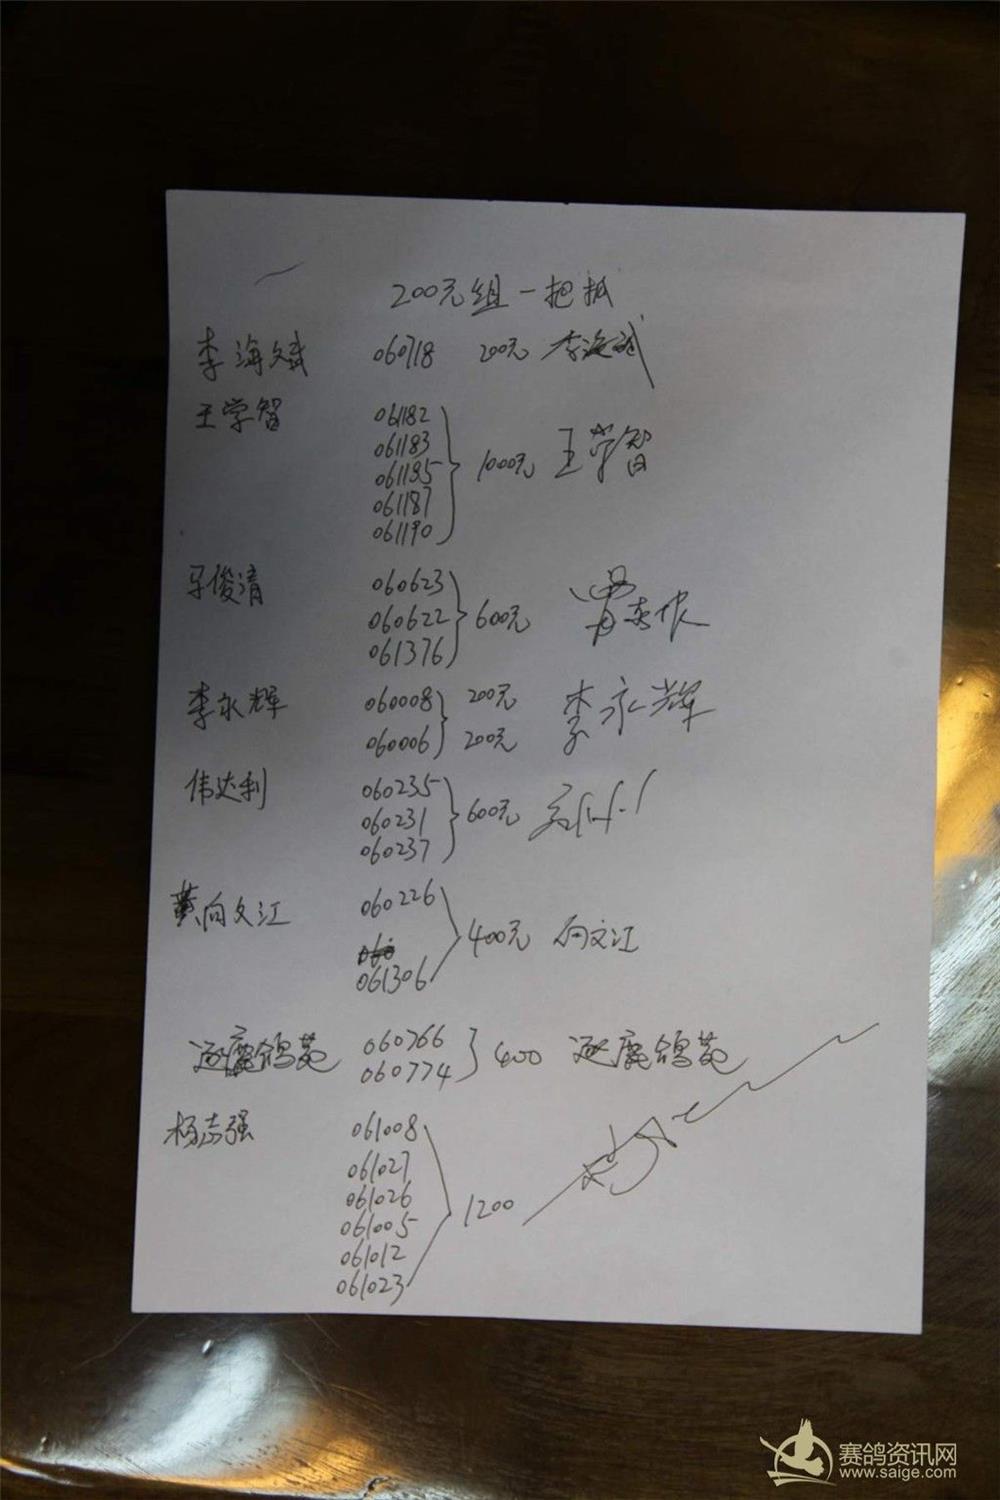 200元组一把抓
李海斌 060718 200元 李海斌
王学智 061182
061183
061185 1000元 王学智
061187
061190
马俊清 060623
060622 600元
061376
李永辉 060008 200元 李永辉
060006 200元
伟达利 060235
060231 600元
060237
向文江 060226
400元 向文江
061306
逐鹿鸽苑 060766 400 逐鹿鸽苑
060774
杨志强 061008
061027
061026 1200
061005
061012
061023
赛鸽资讯网
www.saige.com